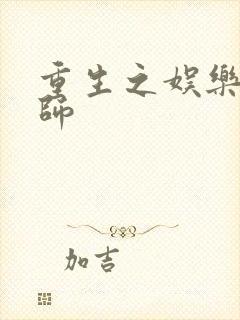 重生之娱樂
師
加吉